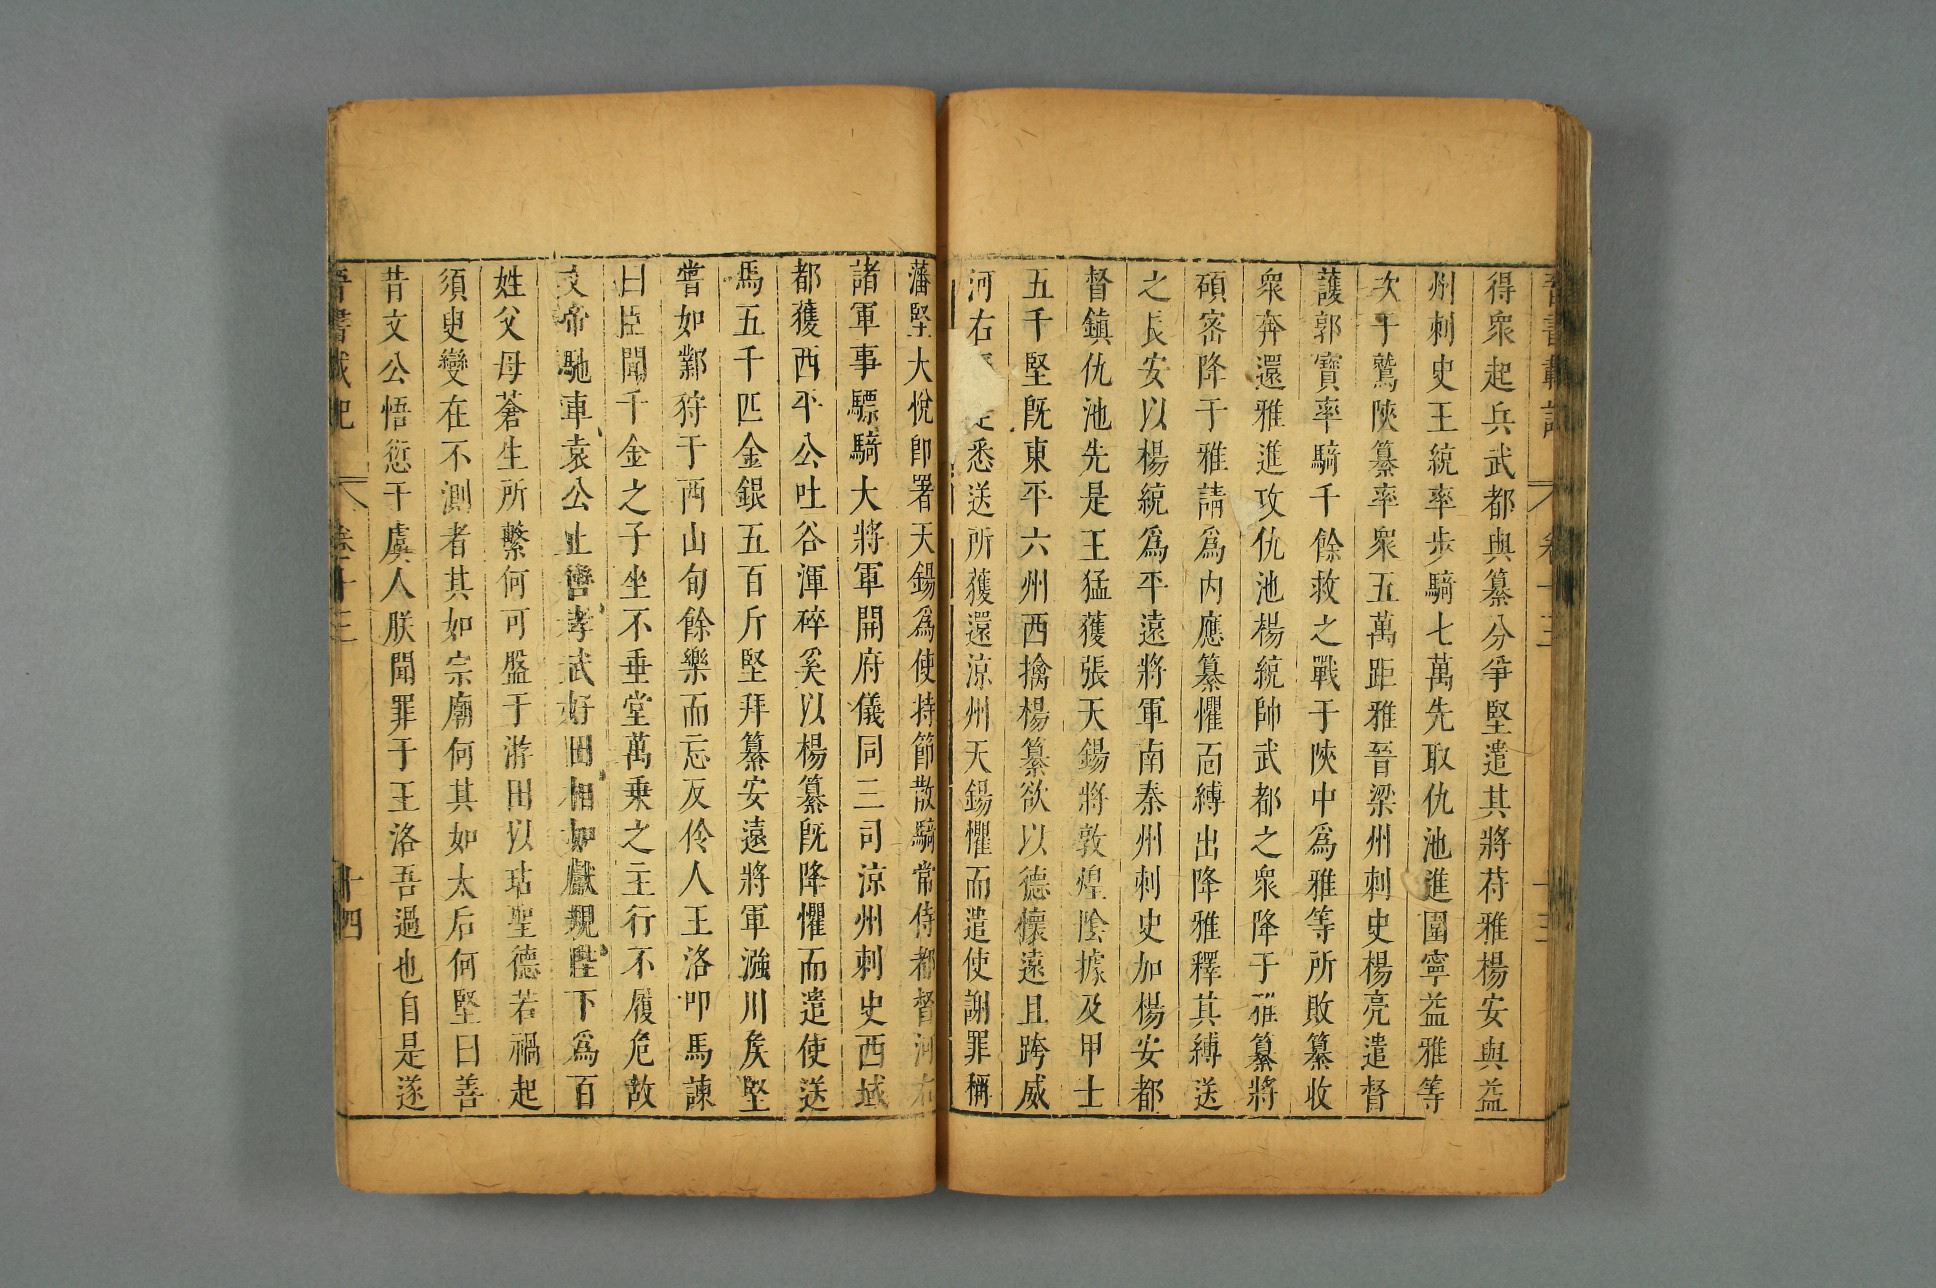 晉書載記 卷十三 十三
得衆起兵武都與纂分爭堅遣其將苻雅楊安與益
州刺史王統率步騎七萬先取仇池進圍寧益雅等
次于鷲陜纂率衆五萬距雅晉梁州刺史楊亮遣督
護郭寶率騎千餘救之戰于陜中爲雅等所敗纂收
衆奔還雅進攻仇池楊統帥武都之衆降于雅纂將
碩密降于雅請爲内應纂懼面縛出降雅釋其縛送
之長安以楊統爲平遠將軍南秦州刺史加楊安都
督鎮仇池先是王猛獲張天錫將敦煌陰據及甲士
五千堅旣東平六州西擒楊纂欲以德懷遠且跨威
河右 悉送所獲還涼州天錫懼而遣使謝罪稱
藩堅大悅卽署天錫爲使持節散騎常侍都督河右
諸軍事驃騎大將軍開府儀同三司涼州刺史西域
都獲西平公吐谷渾碎奚以楊纂旣降懼而遣使送
馬五千匹金銀五百斤堅拜纂安遠將軍漒川矦堅
嘗如鄴狩于西山旬餘樂而忘反伶人王洛叩馬諫
曰臣聞千金之子坐不垂堂萬乗之主行不履危故
文帝馳車袁公止轡孝武好田相如獻規陛下爲百
姓父母蒼生所繫何可盤于游田以玷聖德若禍起
須臾變在不測者其如宗廟何其如太后何堅曰善
昔文公悟愆于虞人朕聞罪于王洛吾過也自是遂
晉書載記 卷十三 十四